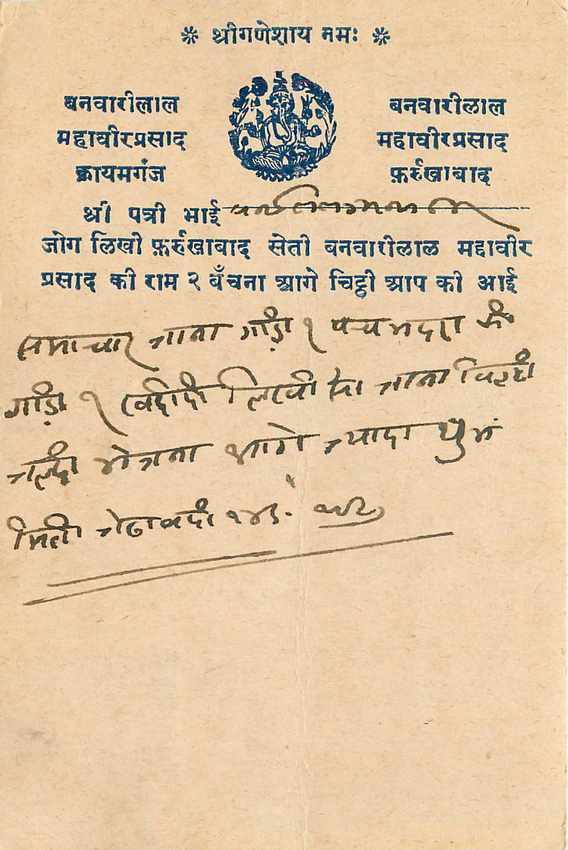 * श्रीगणेशाय नमः *
बनवारीलाल
महावीरप्रसाद
क़ायमगंज
बनवारीलाल
महावीरप्रसाद
फ़र्रुखाबाद
श्री पत्री भाई
जोग लिखी फ़र्रुखाबाद सेती बनवारीलाल महावीर
प्रसाद की राम २ बँचना आगे चिट्ठी आप की आई
समाचार जाना गाँड़ी १
गाँड़ी १ लिखी जाना
जल्दी भेजना आगे ज्यादा शुभ
मिती जेठ वदी